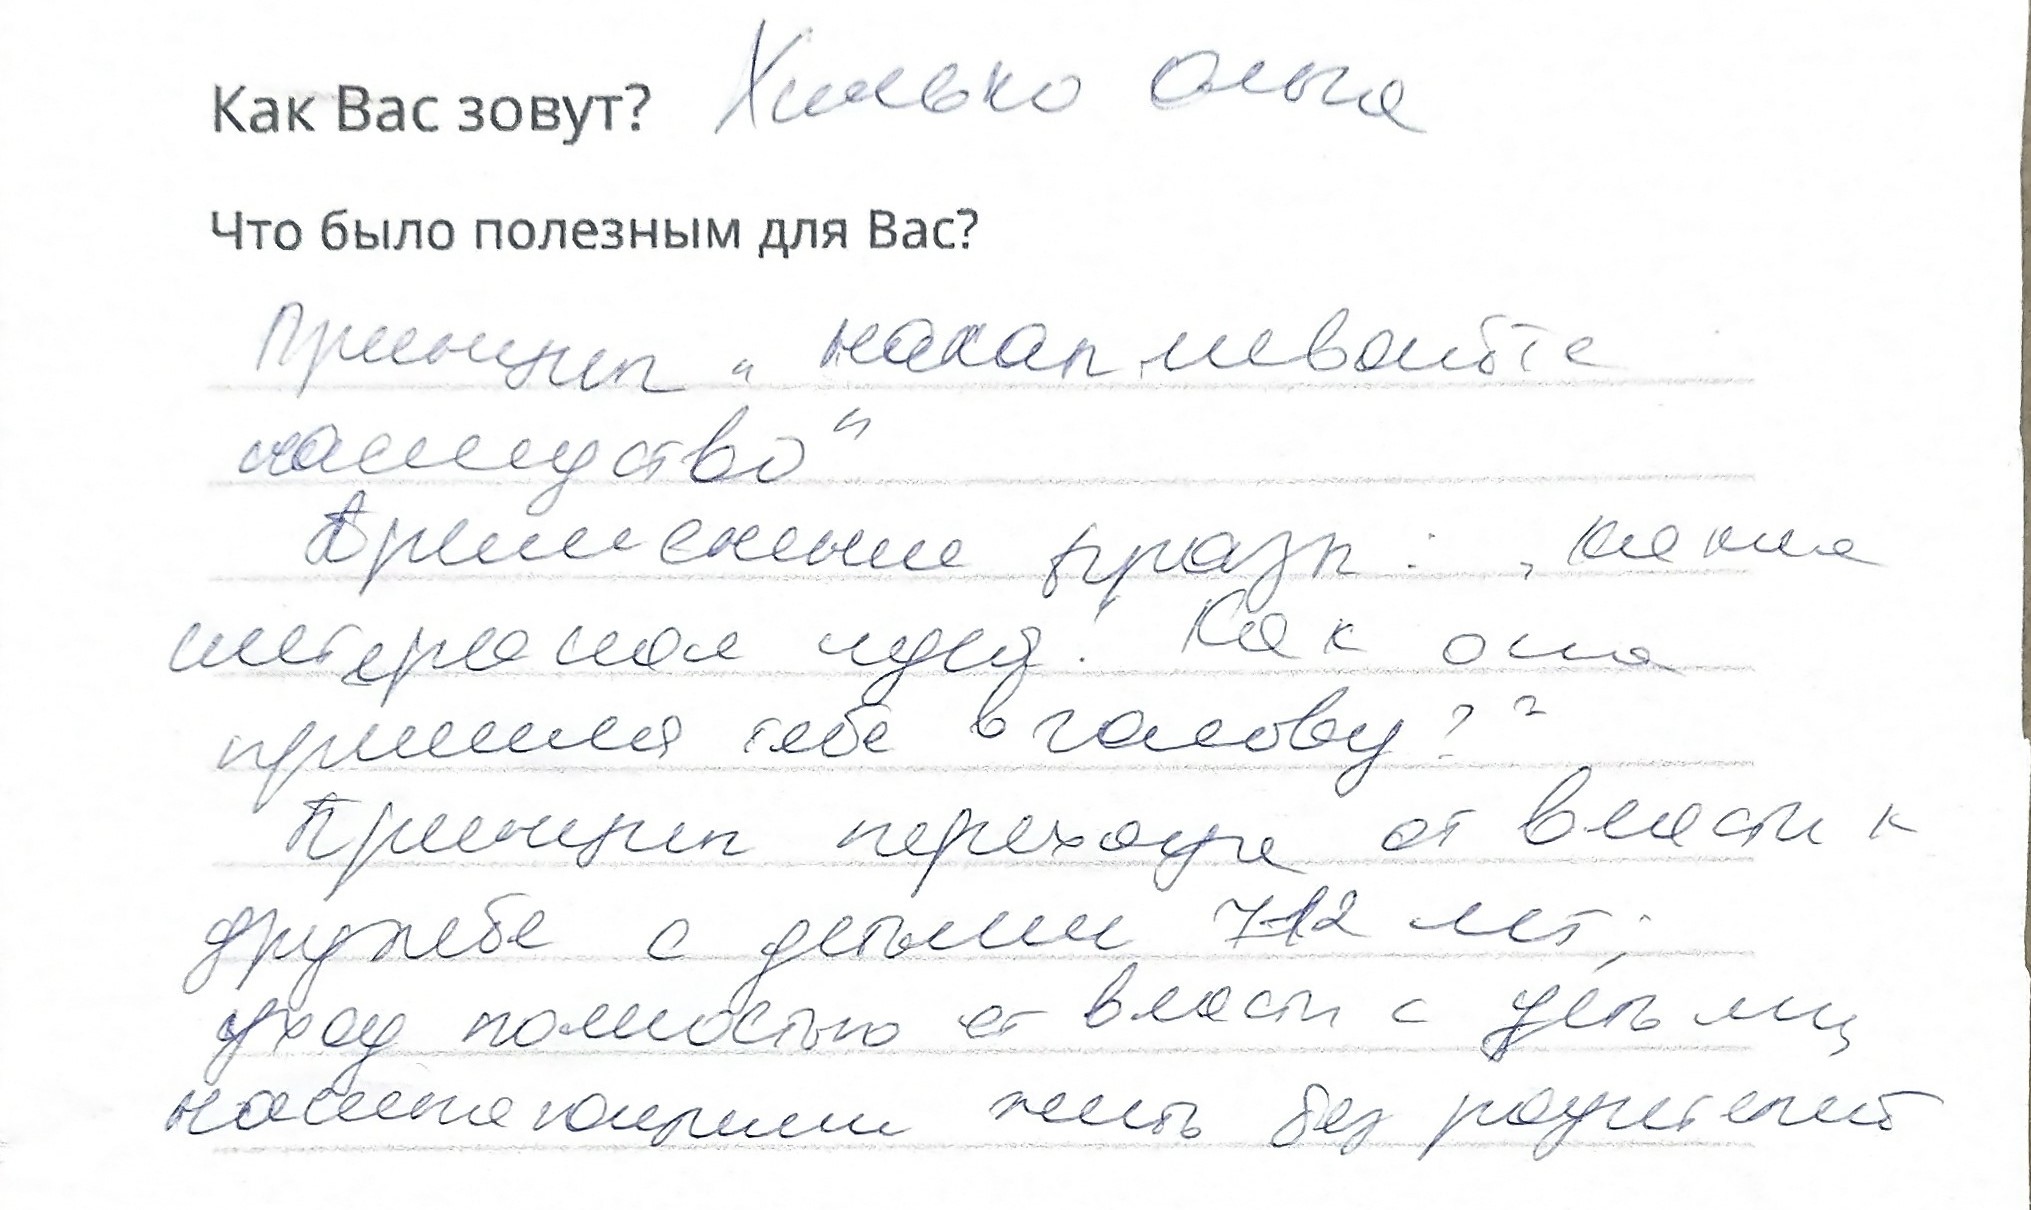 Как Вас зовут? Хилько Ольга
Что было полезным для Вас?
Принцип „накапливайте
имущество“
Применение фразы: „какая
интересная идея! Как она
пришла тебе в голову?“
Принцип перехода от власти к
дружбе с детьми 7-12 лет.
уход полностью от власти с детьми,
начинающими жить без родителей